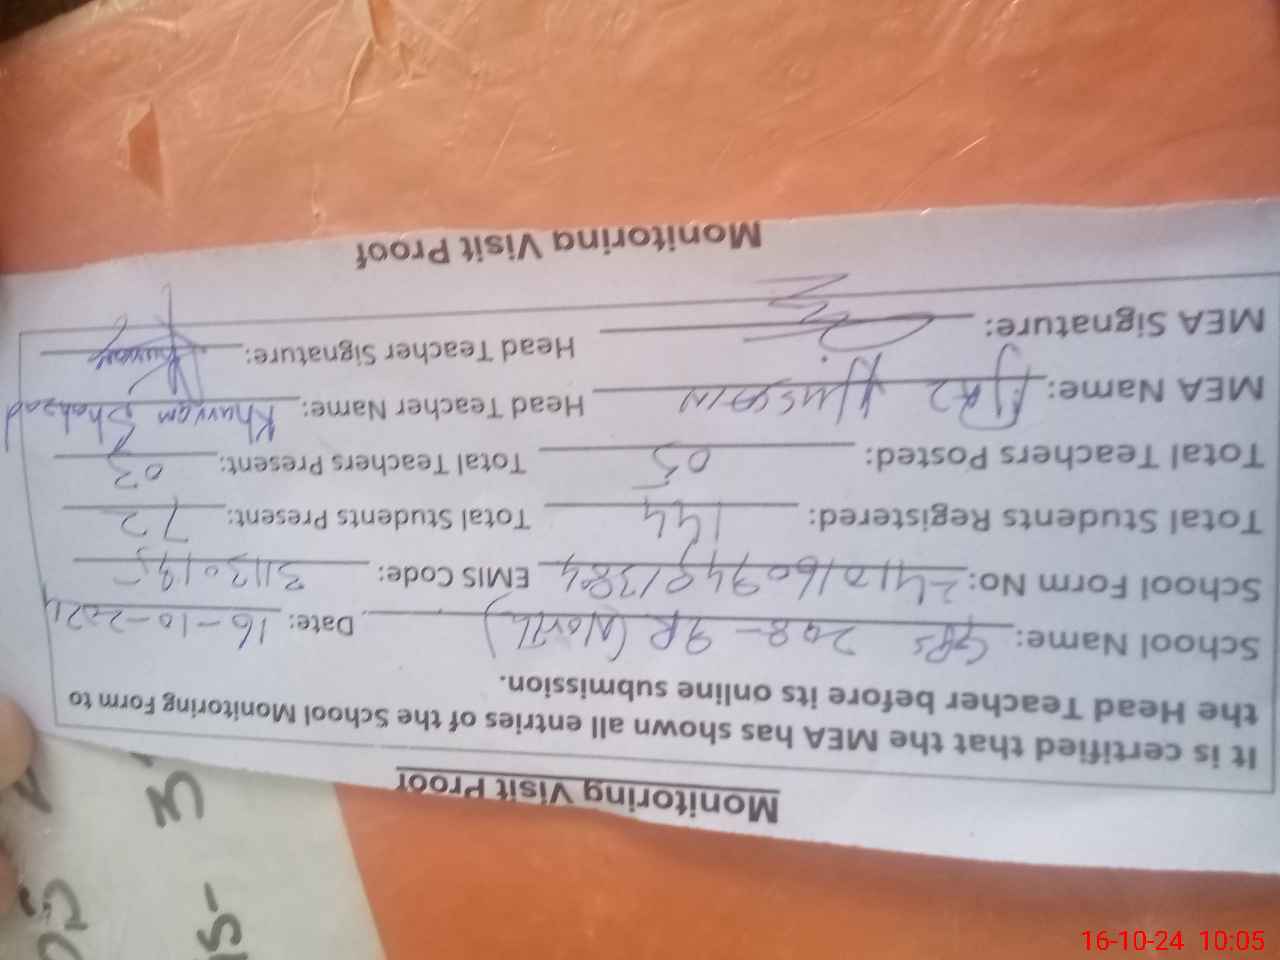 Monitoring Visit Proof
It is certified that the MEA has shown all entries of the School Monitoring Form to
the Head Teacher before its online submission.
School Name: GPS 298-9R (North) Date: 16-10-2024
School Form No: EMIS Code:
Total Students Registered: 144 Total Students Present: 72
Total Teachers Posted: 05 Total Teachers Present: 03
MEA Name: Hussain Head Teacher Name: Khurram Shahzad
MEA Signature: Head Teacher Signature: Khurram
Monitoring Visit Proof
16-10-24 10:05